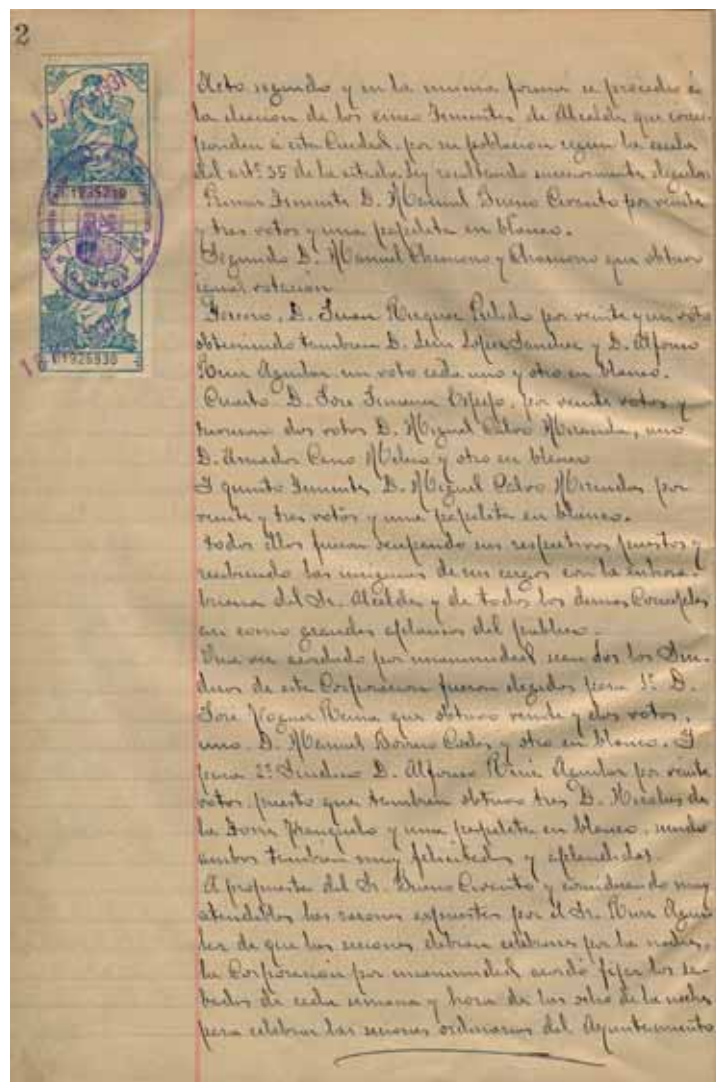 2
Acto seguido y en la misma forma se procedió á
la eleccion de los cinco Tenientes de Alcalde que corres-
ponden á esta Ciudad por su poblacion segun la escala
del artº 35 de la citada Ley resultando sucesivamente elegidos
Primer Teniente D. Manuel Bueno por veinte
y tres votos y una papeleta en blanco.
Segundo D. Manuel Chamorro y Chamorro que obtuvo
igual votacion
Tercero, D. Juan Pulido por veinte y un voto
obteniendo tambien D. Luis Lopez Sanchez y D. Alfonso
Ruiz Aguilar un voto cada uno y otro en blanco.
Cuarto D. Jose Jimenez Espejo, por veinte votos y
tuvieron dos votos D. Miguel Calvo Miranda, uno
D. Amador y otro en blanco
Y quinto Teniente D. Miguel Calvo Miranda por
veinte y tres votos y una papeleta en blanco.
Todos ellos fueron ocupando sus respectivos puestos y
recibiendo las insignias de sus cargos con la enhora-
buena del Sr. Alcalde y de todos los demas Concejales
asi como grandes aplausos del publico.
Una vez acordado por unanimidad sean dos los Sin-
dicos de esta Corporacion fueron elegidos para 1º D.
Jose Reina que obtuvo veinte y dos votos,
uno D. Manuel y otro en blanco. Y
para 2º Sindico D. Alfonso Ruiz Aguilar por veinte
votos puesto que tambien obtuvo tres D. Nicolas de
la Torre y una papeleta en blanco, siendo
ambos tambien muy felicitados y aplaudidos.
A propuesta del Sr. Bueno y considerando muy
atendibles las razones expuestas por el Sr. Ruiz Agui-
lar de que las sesiones debian celebrarse por la noche,
la Corporacion por unanimidad acordó fijar los sa-
bados de cada semana y hora de las ocho de la noche
para celebrar las sesiones ordinarias del Ayuntamiento